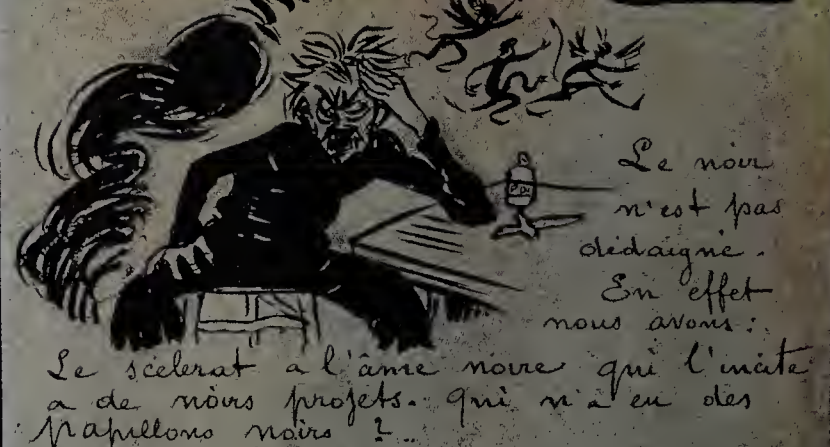 Le noir
n'est pas
dédaigné.
En effet
nous avons :
Le scélerat a l'âme noire qui l'incite
a de noirs projets. qui n'a eu des
papillons noirs ?